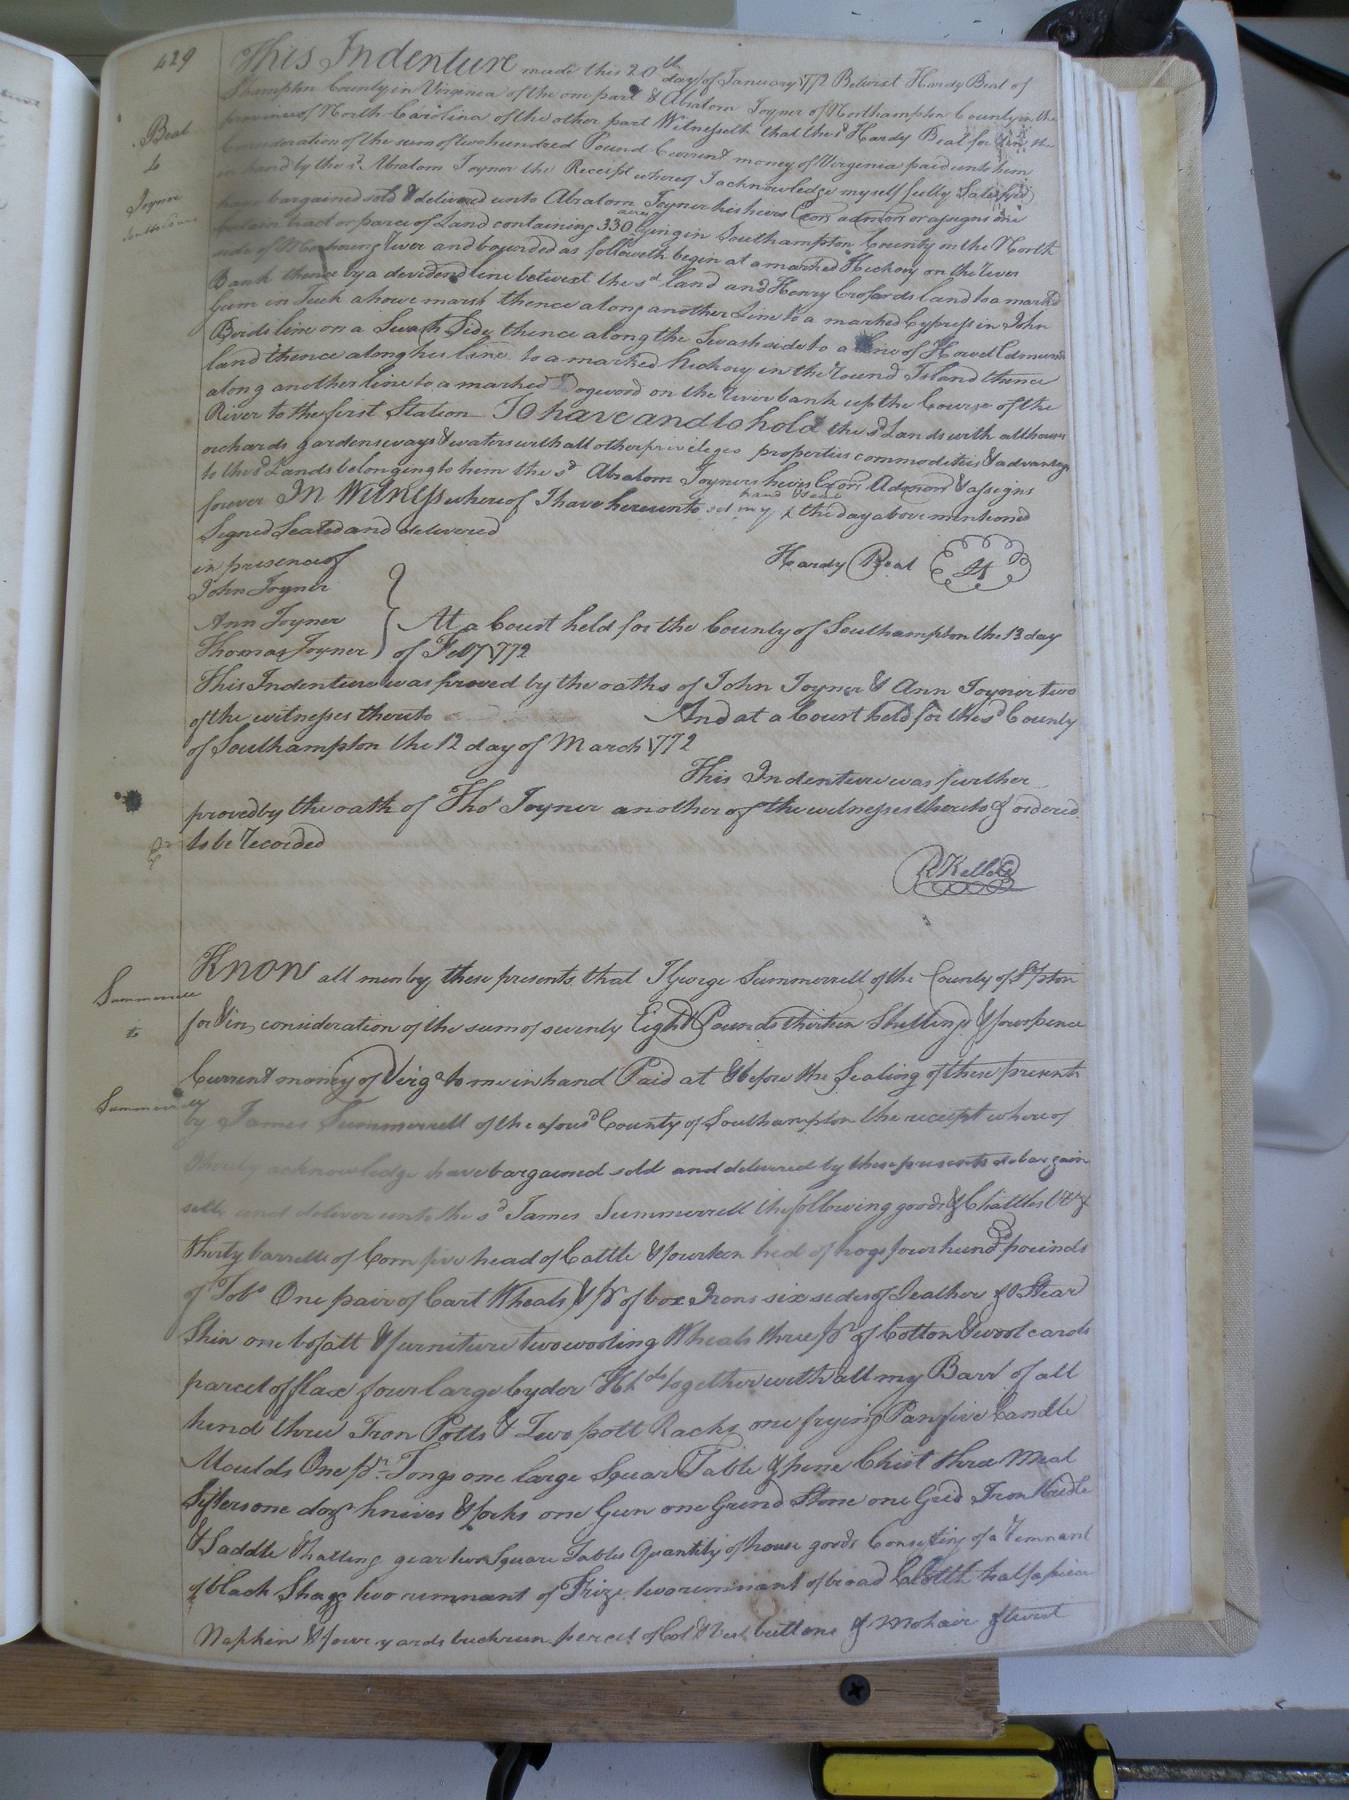 429
This Indenture made this 20th day of January 1772 Betwixt Hardy Beal of
Shampton County in Virginia of the one part & Abralom Joyner of Northampton County in the
province of North Carolina of the other part Witnesseth that the sd Hardy Beal for & in the
Consideration of the sum of two hundred Pound Current money of Virginia paid unto him
in hand by the sd Abralom Joyner the Receipt whereof I acknowledge myself fully Satisfied
have bargained sold & delivered unto Abralom Joyner his heirs Exors admors or assigns one
certain tract or parcel of Land containing 330 acres lying in Southampton County on the North
side of Meherring River and bounded as followeth begin at a marked Hickory on the River
Bank thence by a devidend line betwext the sd land and Henry Crofards land to a marked
Gum in Tuck a howe marsh thence along another Line to a marked Cypress in John
Berds line on a Swash Side thence along the Swash side to a line of Howel Edmunds
land thence along his line to a marked hickory in the round Island thence
along another line to a marked Dogwood on the River bank up the Course of the
River to the first Station To have and to hold the sd Lands with all houses
orchards gardens ways & waters with all other privileges properties commodities & advantages
to the sd Lands belonging to him the sd Abralom Joyner heirs Exors Admors & assigns
forever In Witness whereof I have hereunto set my hand & seale the day above mentioned
Signed Sealed and delivered
in presence of
Hardy Beal
John Joyner
Ann Joyner
Thomas Joyner
At a Court held for the County of Southampton the 13 day
of Feby 1772
This Indenture was proved by the oaths of John Joyner & Ann Joyner two
of the witnesses thereto And at a Court held for the sd County
of Southampton the 12 day of March 1772
This Indenture was further
proved by the oath of Thos Joyner another of the witnesses thereto & ordered
to be recorded
R Kello
Beal
to
Joyner
Know all men by these presents that I George Summerrell of the County of
for & in consideration of the sum of seventy Eight Pounds thirteen Shillings & fourpence
Current money of Virga to me in hand Paid at & before the Sealing of these presents
by James Summerrell of the afousd County of Southampton the receipt whereof
I hereby acknowledge have bargained sold and delivered by these presents do bargain
sell and deliver unto the sd James Summerrell the following goods & Chattles
thirty barrells of Corn five head of Cattle & fourteen hed of hogs four hundd pounds
of Tobo One pair of Cart Wheals & pr of box Irons six sides of Leather & Stear
Skin one & furniture two wooling Wheals three pr of Cotton & wool cards
parcel of flax four large Cyder Hhds together with all my Barr of all
kind three Iron Potts & Two pott Racks one frying Pan five Candle
Moulds One pr Tongs one large Squar Table & pine Chist three Meal
Sifters one dozn knives & forks one Gun one Grind Stone one Grid Iron
& Saddle & halling gear two Square Tables Quantity of house goods Consisting of a remnant
of black Shagg two remnant of Frize two remnant of broad Cloth half a piece
Napkin & four yards buckrum percel of Cot & Vest buttons & Mohair & twist
Summerrell
to
Summerrell